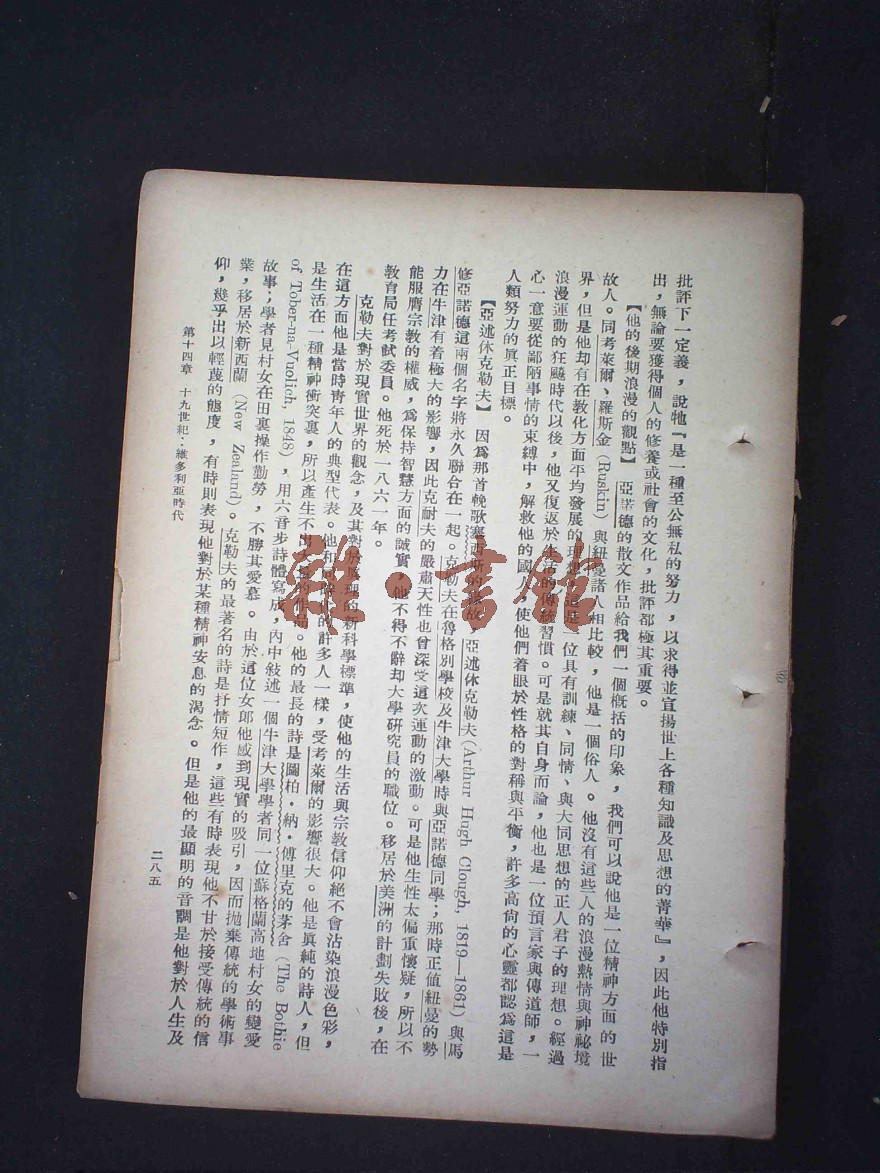 批評下一定義，說牠『是一種至公無私的努力，以求得並宣揚世上各種知識及思想的菁華』，因此他特別指
出，無論要獲得個人的修養或社會的文化，批評都極其重要。
【他的後期浪漫的觀點】　亞諾德的散文作品給我們一個概括的印象，我們可以說他是一位精神方面的世
故人。同考萊爾、羅斯金(Ruskin)與紐曼諸人相比較，他是一個俗人。他沒有這些人的浪漫熱情與神祕境
界，但是他却有在教化方面平均發展的理想，這是一位具有訓練、同情、與大同思想的正人君子的理想。經過
浪漫運動的狂飈時代以後，他又復返於生活的傳統習慣。可是就其自身而論，他也是一位預言家與傳道師，一
心一意要從鄙陋事情的束縛中，解救他的國人，使他們着眼於性格的對稱與平衡，許多高尙的心靈都認爲這是
人類努力的眞正目標。
【亞述休克勒夫】　因爲那首輓歌塞西斯的緣故，亞述休克勒夫(Arthur Hugh Clough, 1819—1861)與馬
修亞諾德這兩個名字將永久聯合在一起。克勒夫在魯格別學校及牛津大學時與亞諾德同學；那時正値紐曼的勢
力在牛津有着極大的影響，因此克耐夫的嚴肅天性也曾深受這次運動的激動。可是他生性太偏重懷疑，所以不
能服膺宗教的權威，爲保持智慧方面的誠實，他不得不辭却大學研究員的職位。移居於美洲的計劃失敗後，在
教育局任考試委員。他死於一八六一年。
克勒夫對於現實世界的觀念，及其對於眞理的新科學標準，使他的生活與宗教信仰絕不會沾染浪漫色彩，
在這方面他是當時青年人的典型代表。他和同時的許多人一樣，受考萊爾的影響很大。他是眞純的詩人，但
是生活在一種精神衝突裏，所以產生不出大量的作品。他的最長的詩是圖柏·納·傅里克的茅舍(The Bothie
of Tober-na-Vuolich, 1848)，用六音步詩體寫成，內中敍述一個牛津大學學者同一位蘇格蘭高地村女的戀愛
故事；學者見村女在田裏操作勤勞，不勝其愛慕。由於這位女郎他感到現實的吸引，因而拋棄傳統的學術事
業，移居於新西蘭(New Zealand)。克勒夫的最著名的詩是抒情短作，這些有時表現他不甘於接受傳統的信
仰，幾乎出以輕蔑的態度，有時則表現他對於某種精神安息的渴念。但是他的最顯明的音調是他對於人生及
第十四章　十九世紀：維多利亞時代
二八五
雜·書館